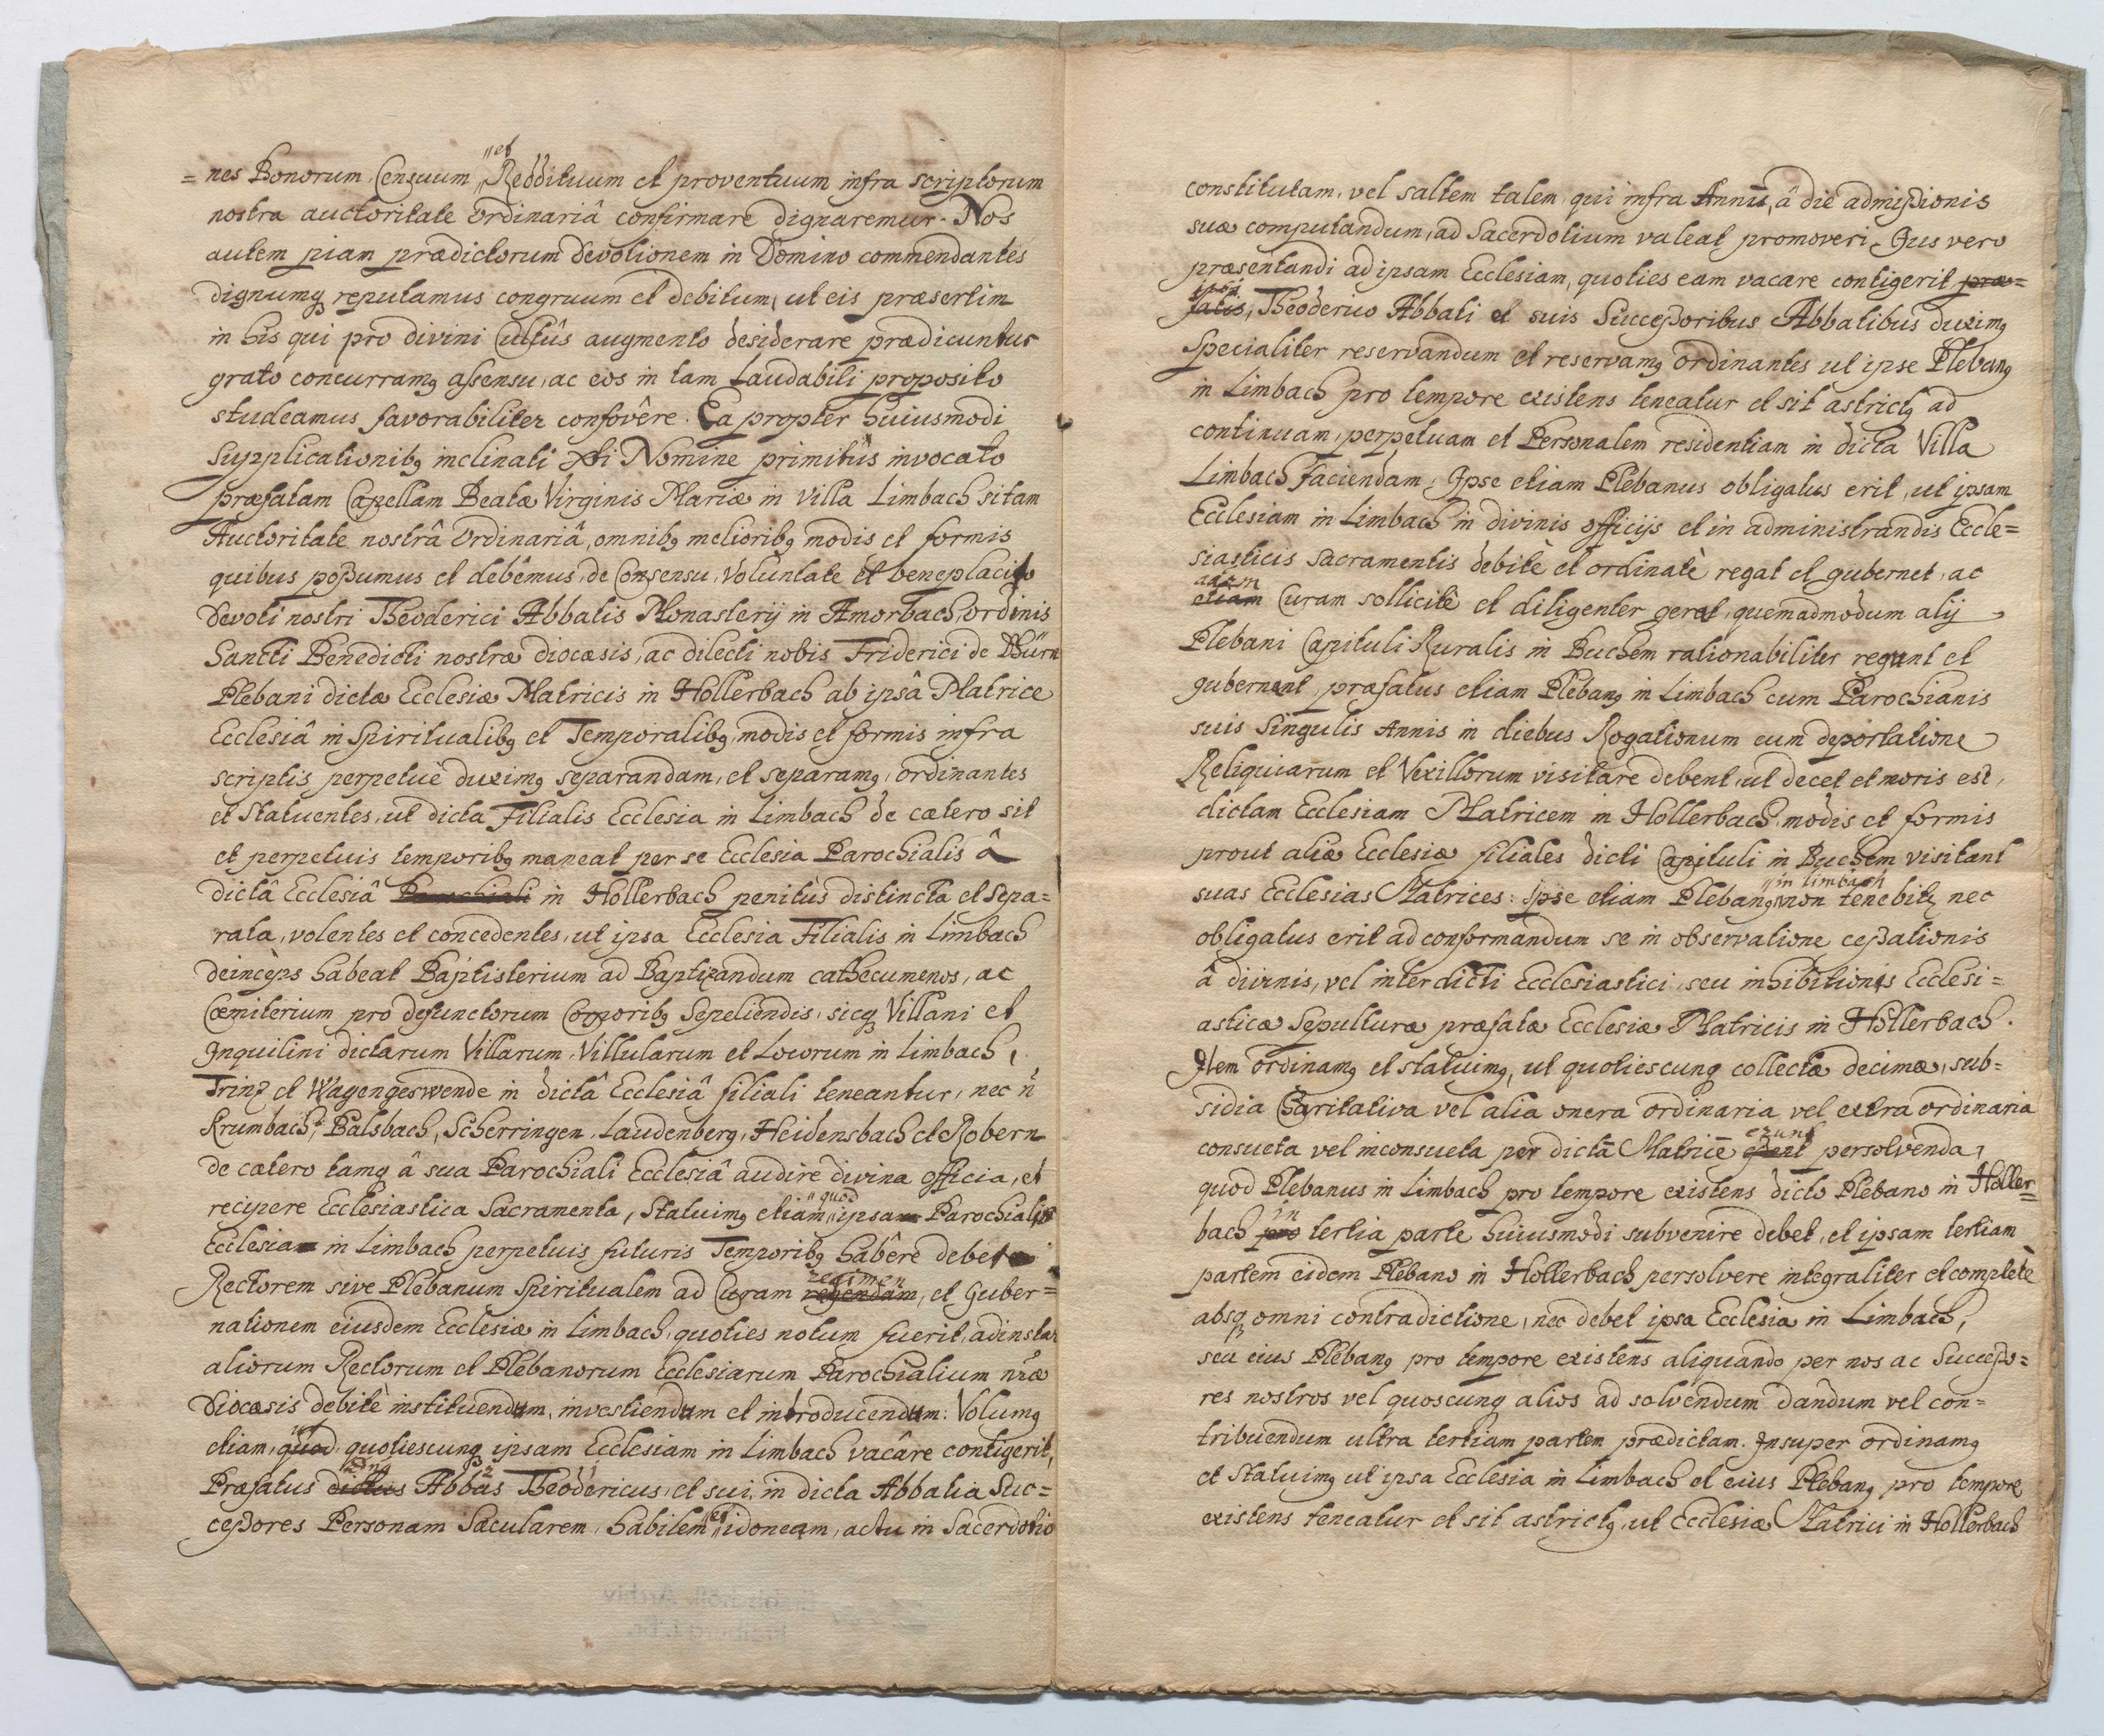 = nes Bonorum Censuum „et Reddituum et proventuum infra scriptorum
nostra auctoritate ordinariâ confirmare dignaremur. Nos
autem piam prædictorum devotionem in Domino commendantes
dignumq reputamus congruum et debitum, ut eis præsertim
in his qui pro divini Cultûs augmento desiderare prædicuntur
grato concurramq assensu, ac eos in tam Laudabili proposito
studeamus favorabiliter confovêre. Ea propter huiusmodi
Supplicationibq inclinati Xti Nomine primitùs invocato
præfatam Capellam Beatæ Virginis Mariæ in villa Limbach sitam
Auctoritate nostrâ Ordinariâ, omnibq melioribq modis et formis
quibus possumus et debêmus, de Consensu, Voluntate et beneplacito
Devoti nostri Theoderici Abbatis Monasterij in Amorbach, ordinis
Sancti Benedicti nostræ diocæsis, ac dilecti nobis Friderici de Dhürn
Plebani dictæ Ecclesiæ Matricis in Hollerbach ab ipsâ Matrice
Ecclesiâ in Spiritualibq et Temporalibq, modis et formis infra
scriptis perpetuè duximq separandam, et separamq, ordinantes
et Statuentes, ut dicta Filialis Ecclesia in Limbach de cætero sit
et perpetuis temporibq maneat per se Ecclesia Parochialis â
dictâ Ecclesiâ Parochiali in Hollerbach penitùs distincta et sepa=
rata, volentes et concedentes, ut ipsa Ecclesia Filialis in Limbach
deincèps habeat Baptisterium ad Baptizandum cathecumenos, ac
Cœmiterium pro defunctorum Corporibq Sepeliendis, sicq Villani et
Inquilini dictarum Villarum, Villularum et Locorum in Limbach,
Trinz et Wagengeswende in dictâ Ecclesiâ filiali teneantur, nec ñ
Krumbach, Balsbach, Scherringen, Laudenberg, Heidensbach et Robern
de cætero tamq â sua Parochiali Ecclesiâ audire divina officia, et
recipere Ecclesiastica Sacramenta, Statuimq etiam „quod ipsam Parochialis
Ecclesiam in Limbach perpetuis futuris Temporibq habêre debet
Rectorem sive Plebanum Spiritualem ad Curam regendam regimen, et Guber=
nationem eiusdem Ecclesiæ in Limbach, quoties notum fuerit, ad instar
aliorum Rectorum et Plebanorum Ecclesiarum Parochialium nræ
Diocæsis debitè instituendum, investiendum et introducendum: Volumq
etiam, quod ut quotiescunq ipsam Ecclesiam in Limbach vacâre contigerit,
Præfatus dictus Abbas Theodericus, et sui, in dicta Abbatia Suc=
cessores Personam Sæcularem, habilem „et idoneam, actu in Sacerdotio
constitutam, vel saltem talem, qui infra Annū, â die admissionis
suæ computandum, ad Sacerdotium valeat promoveri, Jus vero
præsentandi ad ipsam Ecclesiam, quoties eam vacare contigerit præ=
fatis, ipsi Theoderico Abbati et suis Successoribus Abbatibus duximq
Specialiter reservandum et reservamq ordinantes ut ipse Plebanq
in Limbach pro tempore existens teneatur et sit astrictq ad
continuam, perpetuam et Personalem residentiam in dicta Villa
Limbach faciendam, Ipse etiam Plebanus obligatus erit, ut ipsam
Ecclesiam in Limbach in divinis officijs et in administrandis Eccle=
siasticis sacramentis debitè et ordinatè regat et gubernet, ac
etiam Curam sollicitè et diligenter gerat, quemadmodum alij
Plebani Capituli Ruralis in Buchem rationabiliter regunt et
gubernant, præfatus etiam Plebanq in Limbach cum Parochianis
suis Singulis Annis in diebus Rogationum cum deportatione
Reliquiarum et Vexillorum visitare debent, ut decet et moris est,
dictam Ecclesiam Matricem in Hollerbach, modis et formis
prout aliæ Ecclesiæ filiales dicti Capituli in Buchem visitant
suas Ecclesias Matrices: Ipse etiam Plebanq „in Limbach non tenebitq nec
obligatus erit ad conformandum se in observatione cessationis
â divinis, vel interdicti Ecclesiastici, seu inhibitionis Ecclesi=
asticæ Sepulturæ præfatæ Ecclesiæ Matricis in Hollerbach.
Item ordinamq et statuimq, ut quotiescunq collectæ decimæ, sub=
sidia Charitativa vel alia onera ordinaria vel extra ordinaria
consueta vel inconsueta per dictā Matricē essent erunt persolvenda,
quod Plebanus in Limbach pro tempore existens dicto Plebano in Holler=
bach pro in tertia parte huiusmodi subvenire debet, et ipsam tertiam
partem eidem Plebano in Hollerbach persolvere integraliter et complete
absq omni contradictione, nec debet ipsa Ecclesia in Limbach,
seu eius Plebanq pro tempore existens aliquando per nos ac Successo=
res nostros vel quoscunq alios ad solvendum dandum vel con=
tribuendum ultra tertiam partem prædictam. Insuper ordinamq
et Statuimq ut ipsa Ecclesia in Limbach et eius Plebanq pro tempore
existens teneatur et sit astrictq, ut Ecclesiæ Matrici in Hollerbach